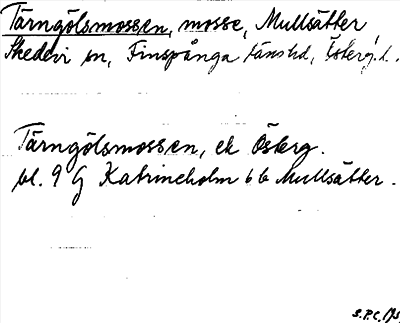 Tärngölsmossen, mosse, Mullsätter,
Skedevi sn, Finspånga länshd, Österg.l.
Tärngölsmossen, ek Österg.
bl. 9 G Katrineholm 6 b Mullsätter.
S.P.C.